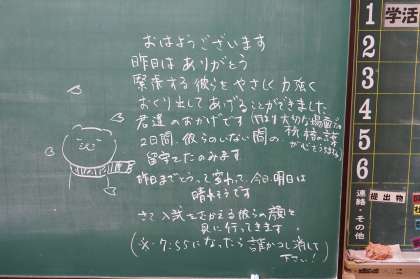 おはようございます
昨日は ありがとう
緊張する彼らを やさしく 力強く
おくり出して あげることができました
君達の おかげです (やはり 大切な場面での
2日間、彼らのいない 間の
留守をたのみます
昨日までとうって変わって、今日、明日は
晴れそうです
さて 入試をむかえる彼らの顔を
見に行ってきます
(※ 7:55になったら 誰かコレ消して
下さい!)
1 学活
2
3
4
5
6
連絡・その他
提出物